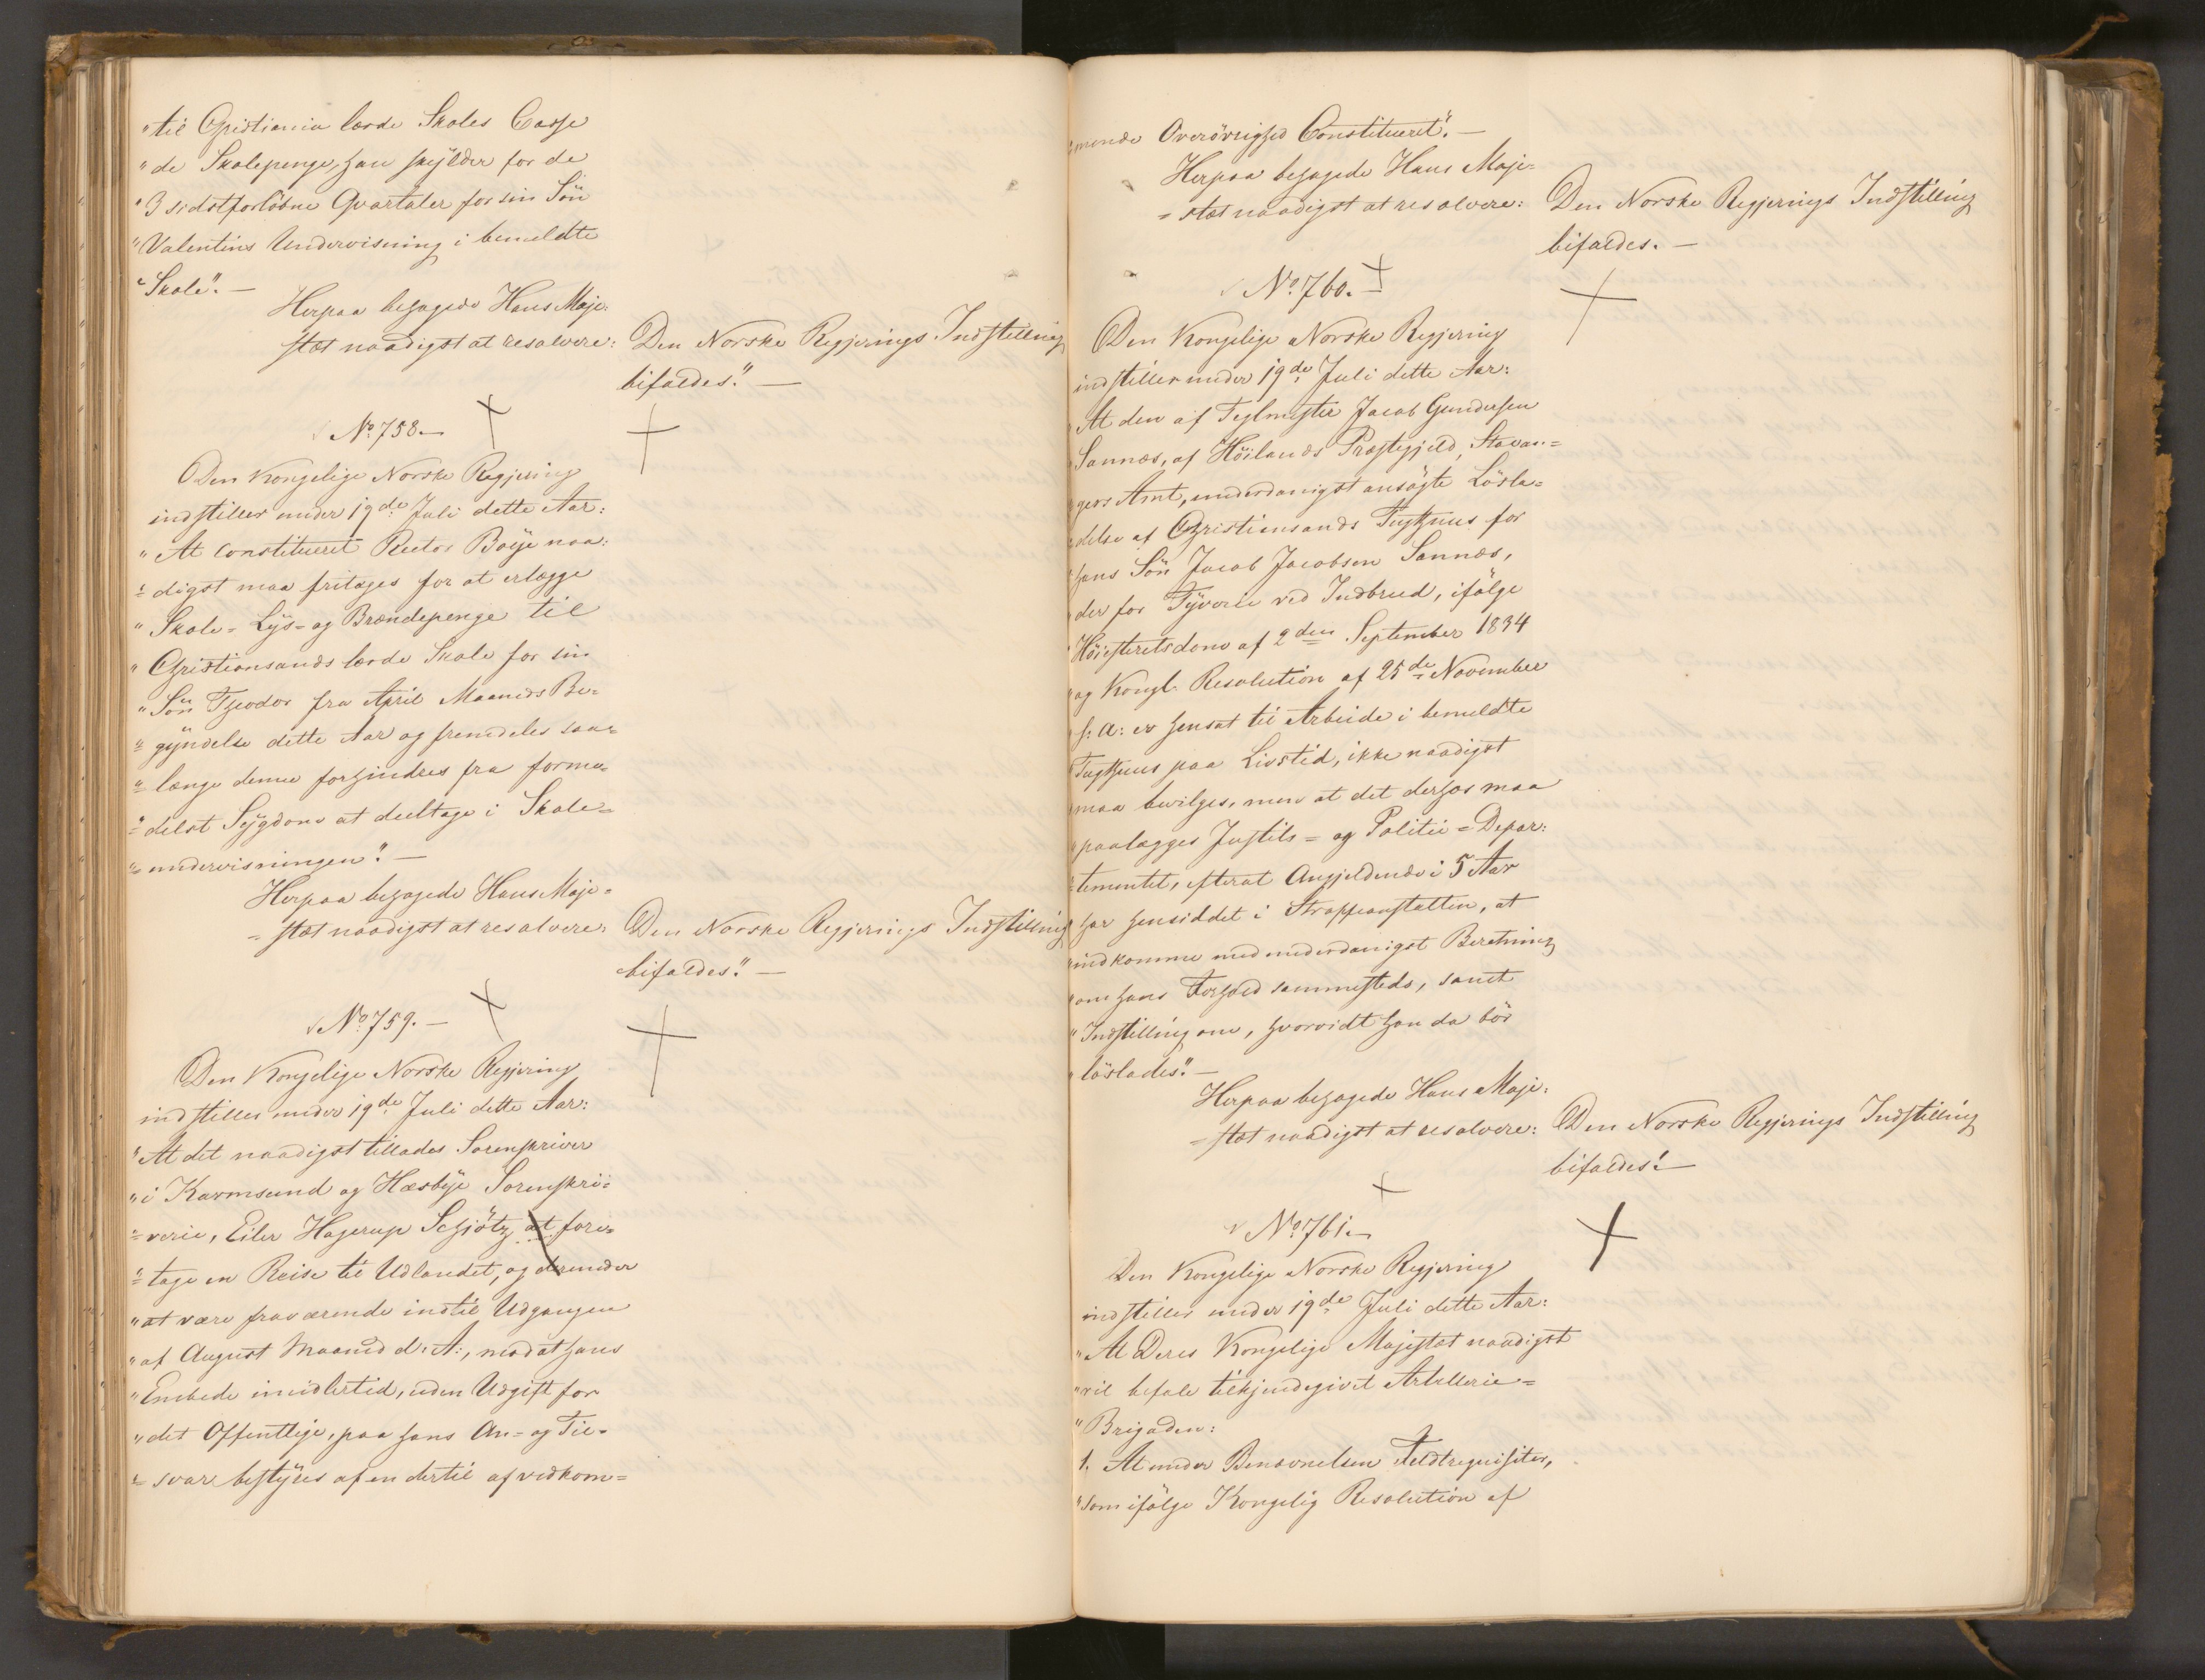 "til Christiania lærde Skoles Casse
"de Skolepenge, han skylder for de
"3 sidstforløbne Qvartaler for sin Sön
"Valentins Underviisning i bemeldte
"Skole". —
Herpaa behagede Hans Maje-
stæt naadigst at resolvere: Den Norske Regjerings Indstilling
bifaldes." —
No. 758. —
Den Kongelige Norske Regjering
indstiller under 19de Juli dette Aar:
"At constitueret Rector Boye naa-
"digst maa fritages for at erlægge
"Skole- Lys- og Brændepenge til
"Christiansands lærde Skole for sin
"Sön Theodor fra April Maaneds Be-
"gyndelse dette Aar og fremdeles saa-
"længe denne forhindres fra forme-
"delst Sygdom at deeltage i Skole-
"undervisningen". —
Herpaa behagede Hans Maje-
-stæt naadigst at resolvere: Den Norske Regjerings Indstilling
bifaldes." —
No. 759. —
Den Kongelige Norske Regjering
indstiller under 19de Juli dette Aar:
"At det naadigst tillades Sorenskriver
"i Karmsund og Hæsbye Sorenskri-
"verie, Eiler Hagerup Schjötz, at fore-
"tage en Reise til Udlandet, og derunder
"at være fraværende indtil Udgangen
"af August Maaned d: A:, mod at hans
"Embede imidlertid, uden Udgift for
"det Offentlige, paa hans An- og Til-
"svar bestyres af en dertil af vedkom-
"mende Overövrighed Constitueret". —
Herpaa behagede Hans Maje-
-stæt naadigst at resolvere: Den Norske Regjerings Indstilling
bifaldes. —
No. 760. —
Den Kongelige Norske Regjering
indstiller under 19de Juli dette Aar:
"At den af Teglmester Jacob Gundersen
"Sannæs, af Höilands Præstegjeld, Stavan-
"gers Amt, underdanigst ansögte Lösla-
"delse af Christiansands Tugthuus for
"hans Sön Jacob Jacobsen Sannæs,
"der for Tyverie ved Indbrud, ifölge
"Höiesteretsdom af 2den September 1834
"og Kongl. Resolution af 25de November
"s: A: er hensat til Arbeide i bemeldte
"Tugthuus paa Livstid, ikke naadigst
"maa bevilges, men at det derhos maa
"paalægges Justits- og Politie-Depar-
"tementet, efterat Angjeldende i 5 Aar
"har hensiddet i Straffeanstalten, at
"indkomme med underdanigst Beretning
"om hans Forhold sammesteds, samt
"Indstilling om, hvorvidt han da bör
"löslades". —
Herpaa behagede Hans Maje-
-stæt naadigst at resolvere: Den Norske Regjerings Indstilling
bifaldes. —
No. 761. —
Den Kongelige Norske Regjering
indstiller under 19de Juli dette Aar:
"At Deres Kongelige Majestæt naadigst
"vil befale tilkjendegivet Artillerie-
"Brigaden:
1. At under Benævnelsen Feldtrequisiter,
"som ifölge Kongelig Resolution af